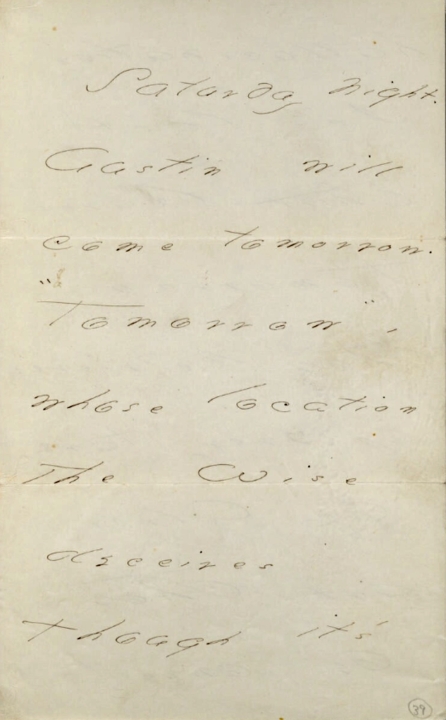 Saturday night.
Austin will
come tomorrow.
"Tomorrow",
whose location
The Wise
deceives
though it's
39